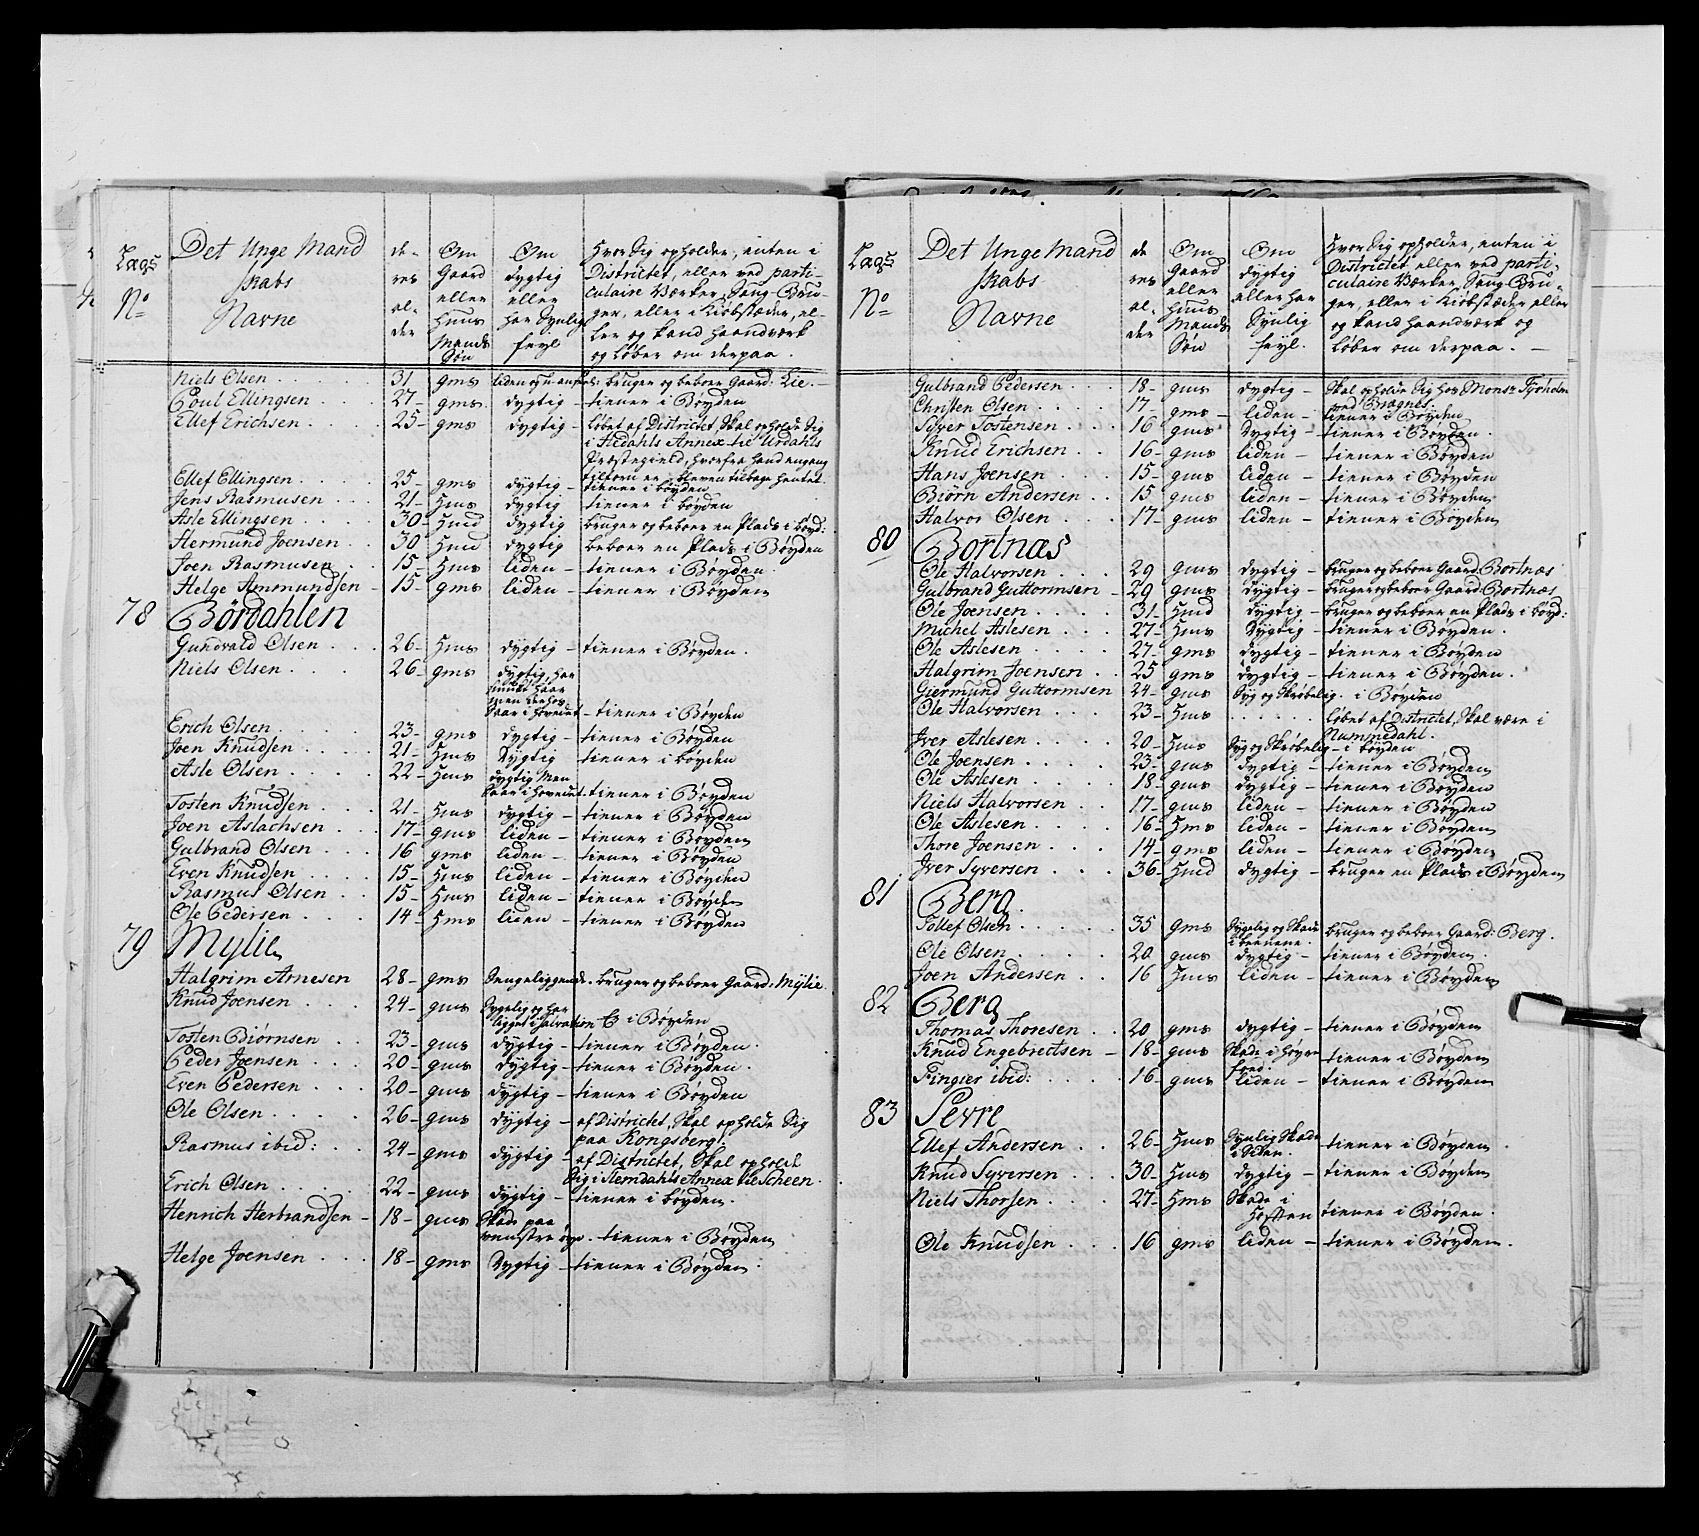 Lags No
Det Unge Mandskabs Navne
deres alder
Om Gaard eller Huus Mands Søn
Om dygtig eller har Synlig feyl
Hvor Sig opholder, enten i Districtet, eller ved particulaire Værker, Saug-Bruger, eller i Kiøbstæder, eller og kand haandværk og løber om derpaa.
Niels Olsen . . . 31 gms liden bruger og beboer Gaard: Lie.
Poul Ellingsen . . . 27 gms dygtig tiener i Bøyden
Ellef Erichsen . . . 25 gms dygtig løbet af Districtet, Skal opholde Sig
i Hedahls Annex til Urdahls
Præstegield, hvorfra hand engang
tilforn er bleven tilbage hentet
Ellef Ellingsen . . . 25 gms dygtig tiener i bøyden
Jens Rasmusen . . . 21 Hms dygtig tiener i bøyden
Asle Ellingsen . . . 30 Hmd dygtig bruger og beboer en Plads i bøyd:
Hermund Joensen . . 30 Hmd dygtig beboer en Plads i Bøyden
Joen Rasmusen . . 15 Hms liden tiener i Bøyden
Helge Ammundsen 15 gms liden tiener i Bøyden
78 Bördahlen
Gundvald Olsen . . . 26 Hms dygtig tiener i Bøyden.
Niels Olsen . . . 26 gms dygtig, har
Saar i hovedet tiener i Bøyden
Erich Olsen . . . 23 gms dygtig tiener i Bøyden
Joen Knudsen . . . 21 Hms dygtig tiener i bøyden
Asle Olsen . . . 22 Hms dygtig Men
Saar i hovedet tiener i Bøyden
Tosten Knudsen . . . 21 Hms dygtig tiener i Bøyden
Joen Aslachsen . . . 17 gms liden tiener i Bøyden
Gulbrand Olsen . . . 16 gms liden tiener i Bøyden
Even Knudsen . . . 15 Hms liden tiener i Bøyden
Rasmus Olsen . . 15 Hms liden tiener i Bøyden
Ole Pedersen . . . 14 Hms liden tiener i Bøyden
79 Mylie
Halgrim Arnesen 28 gms Sengeliggende. bruger og beboer Gaard: Mylie.
Knud Joensen . . . 24 gms Sygelig og har
ligget i Salvation i Bøyden
Tosten Biørnsen . . 23 gms dygtig tiener i Bøyden.
Peder Joensen . . . 20 gms dygtig tiener i Bøyden.
Even Pedersen . . . 20 gms dygtig tiener i Bøyden
Ole Olsen . . . 26 gms dygtig af Districtet, Skal opholde Sig
paa Kongsberg.
Rasmus ibid: . . 24 gms dygtig af Districtet, Skal opholde
Sig i Slemdahls Annex til Scheen.
Erich Olsen . . . 22 gms dygtig tiener i bøyden.
Henrich Herbrandsen 18 gms Skade paa
venstre øye. tiener i Bøyden
Helge Joensen . 18 gms dygtig tiener i Bøyden.
Lags No
Det Unge Mandskabs Navne
deres alder
Om Gaard eller Huus Mands Søn
Om dygtig eller har Synlig feyl.
Hvor Sig opholder, enten i Districtet eller ved particulaire Værker, Saug-Bruger, eller i Kiøbstæder eller og kand haandværk og løber om derpaa.
Gulbrand Pedersen . . . 18 gms dygtig Skal opholde Sig hos Monsr Tyrholm
ved Bragnes.
Christen Olsen . . . 17 gms liden tiener i Bøyden
Syver Tostensen . . . 16 gms dygtig tiener i Bøyden.
Knud Erichsen . . 16 gms liden tiener i Bøyden
Hans Joensen . . . 15 gms liden tiener i Bøyden
Biørn Andersen . . 15 gms liden tiener i Bøyden
Halvor Olsen . . . 17 gms liden tiener i Bøyden
80 Bortnæs
Ole Halvorsen . . . 29 gms dygtig bruger og beboer Gaard: Bortnæs
Gulbrand Guttormsen 29 gms dygtig bruger og beboer Gaard: Bortnæs
Ole Joensen . . . 31 Hmd dygtig bruger og beboer en Plads i bøyd:
Michel Aslesen . . . 27 Hms dygtig tiener i Bøyden.
Ole Aslesen . . . 27 gms dygtig tiener i Bøyden
Halgrim Joensen . . 25 gms dygtig tiener i Bøyden.
Giermund Guttormsen 24 gms Syg og Skrøbelig. i Bøyden
Ole Halvorsen . . . 23 Hms . . . . løbet af Districtet, Skal være i
Nummedahl.
Iver Aslesen . . . 20 Hms Syg og Skrøbelig i bøyden
Ole Joensen . . . 23 gms dygtig tiener i Bøyden
Ole Aslesen . . . 18 gms dygtig tiener i Bøyden
Niels Halvorsen . . 17 gms liden tiener i Bøyden
Ole Aslesen . . . 16 Hms liden tiener i Bøyden
Thore Joensen . . . 14 gms liden tiener i Bøyden
Iver Syversen . . . 36 Hmd dygtig bruger en Plads i Bøyden
81 Berg.
Tollef Olsen . . . 35 gms Sygelig og Skade
i beenene. bruger og beboer Gaard: Berg.
Ole Olsen . . . 20 gms dygtig tiener i Bøyden.
Joen Andersen . . 16 Hms liden tiener i Bøyden
82 Berg
Thomas Thoresen . . 20 gms dygtig tiener i Bøyden
Knud Engebrectsen 18 gms Skade i høyre
foed. tiener i Bøyden
Fingier ibid: . . . 16 gms liden tiener i Bøyden
83 Sevre
Ellef Andersen . . 26 Hms Synlig Skade
i Siden. tiener i Bøyden
Knud Syversen . . 30 Hms dygtig tiener i Bøyden
Niels Thorsen . . . 27 Hms Skade i
Hofften tiener i Bøyden.
Ole Knudsen . . . 16 gms liden tiener i Bøyden.